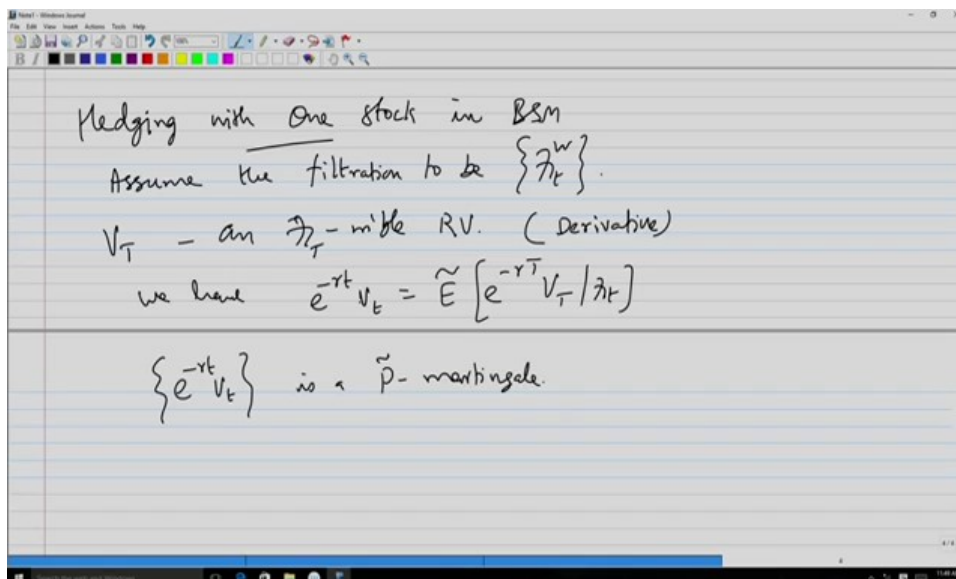 Note1 - Windows Journal
File Edit View Insert Actions Tools Help
Hedging with One stock in BSM
Assume the filtration to be {ℱₜᵂ}.
V_T - an ℱ_T - m'ble RV. (Derivative)
we have e^{-rt} V_t = Ẽ [e^{-rT} V_T / ℱ_t]
{e^{-rt} V_t} is a P̃ - martingale.
4 / 4